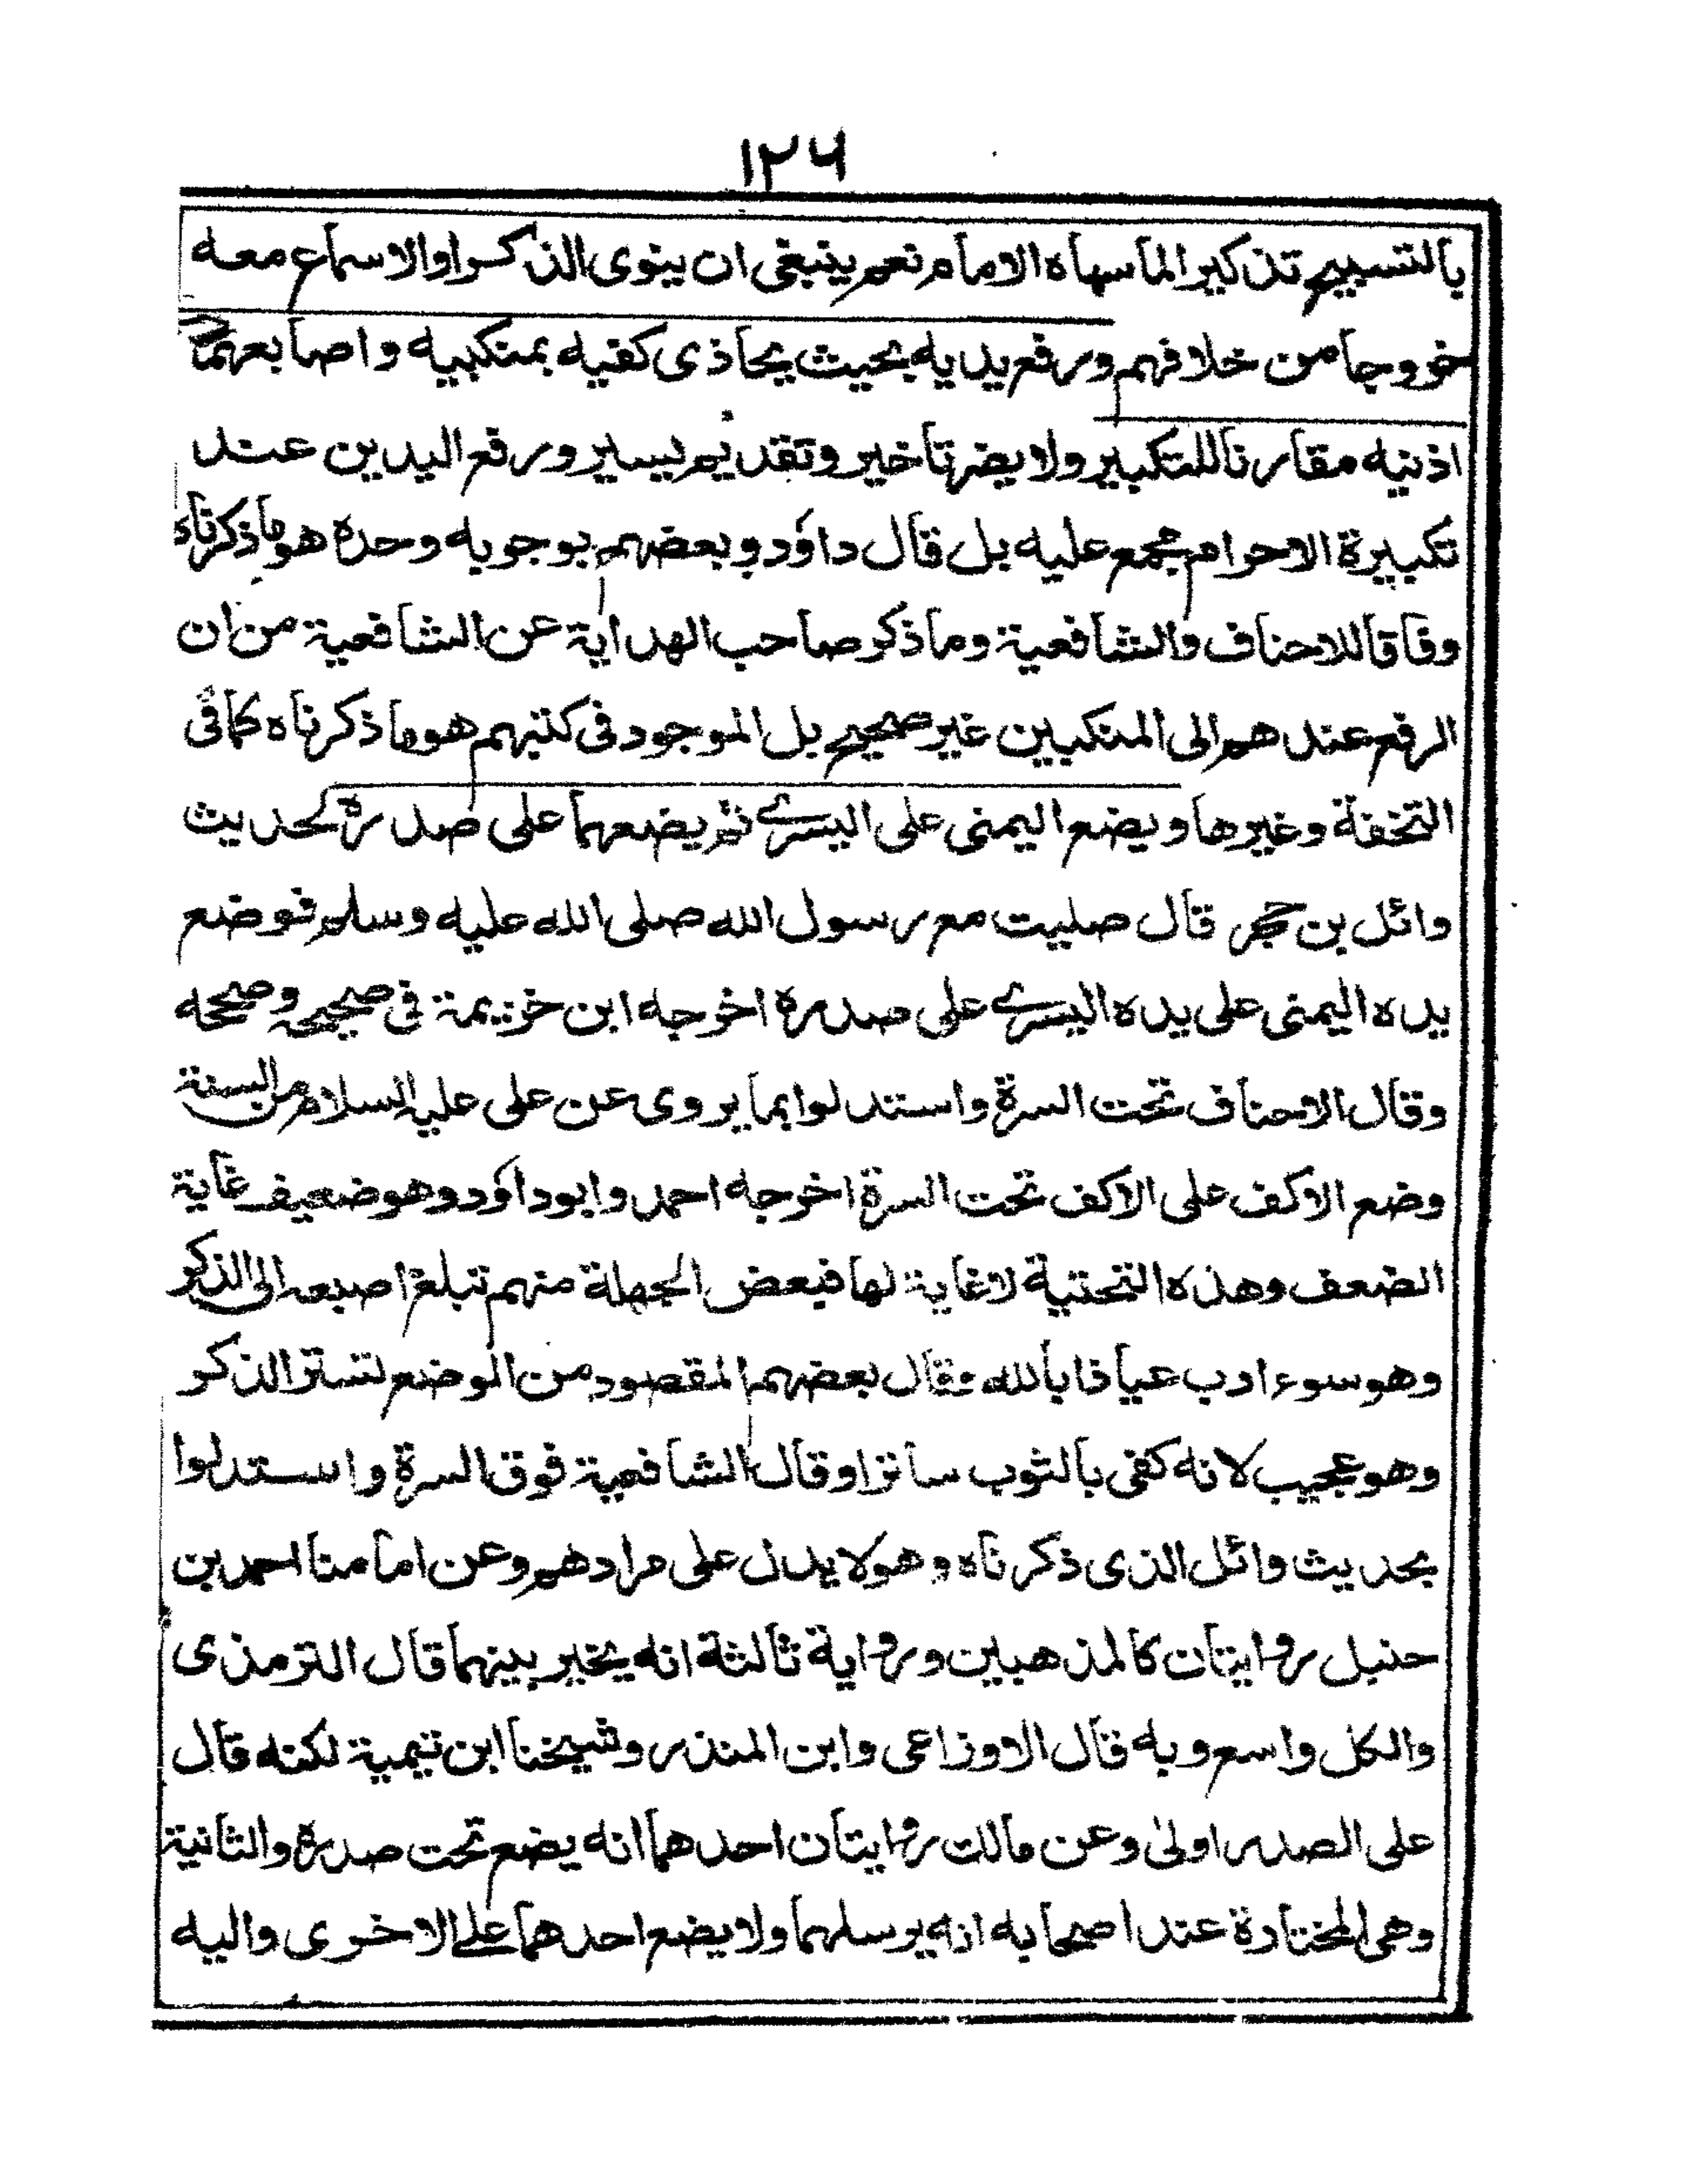 ١٢٦
بالتسبيح تذكيرا لما سهاه الامام نعم ينبغى ان ينوى الذكر او الاسماع معه
خروجا من خلافهم ورفع يديه بحيث يحاذى كفيه بمنكبيه واصابعهما
اذنيه مقارنا للتكبير ولا يضر تاخير وتقديم يسير ورفع اليدين عند
تكبيرة الاحرام مجمع عليه بل قال داؤد وبعضهم بوجوبه وحده هو ما ذكرناه
وفاقا للاحناف والشافعية وما ذكر صاحب الهداية عن الشافعية من ان
الرفع عندهم الى المنكبين غير صحيح بل الموجود فى كتبهم هو ما ذكرناه كما فى
التحفة وغيرها ويضع اليمنى على اليسرے ثم يضعهما على صدره لحديث
وائل بن حجر قال صليت مع رسول الله صلى الله عليه وسلم فوضع
يده اليمنى على يده اليسرے على صدره اخرجه ابن خزيمة فى صحيحه وصححه
وقال الاحناف تحت السرة واستدلوا بما يروى عن على عليه السلام من السنة
وضع الاكف على الاكف تحت السرة اخرجه احمد وابوداؤد وهو ضعيف غاية
الضعف وهذه التحتية لا غاية لها فبعض الجهلة منهم تبلغ اصبعه الى الذكر
وهو سوء ادب عياذا بالله فقال بعضهم المقصود من الوضع لتستر الذكر
وهو عجيب لانه كفى بالثوب ساترا وقال الشافعية فوق السرة واستدلوا
بحديث وائل الذى ذكرناه وهو لا يدل على مرادهم وعن امامنا احمد بن
حنبل روايتان كالمذهبين ورواية ثالثة انه يخير بينهما قال الترمذى
والكل واسع وبه قال الاوزاعى وابن المنذر وشيخنا ابن تيمية لكنه قال
على الصدر اولىٰ وعن مالك روايتان احدهما انه يضع تحت صدره والثانية
وهى المختارة عند اصحابه انه يرسلهما ولا يضع احدهما علے الاخرى واليه